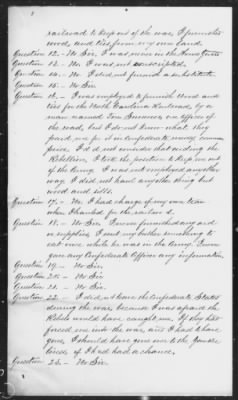 railroad to keep out of the war. I furnished
wood, and ties from my own land.
Question 12.- No Sir. I was never in the Home Guard
Question 13.- No I was not conscripted.
Question 14.- No. I did not furnish a substitute
Question 15.- No Sir.
Question 16.- I was employed to furnish Wood and
ties for the North Carolina Railroad, by a
man named Tom Simmons, an officer of
the road, but I do not know what they
paid me for it in Confederate money
price. I did not consider that aiding the
Rebellion, I took the position to keep me out
of the Army. I was not employed any other
way. I did not haul anything but
wood and sills.
Question 17.- No. I had charge of my own team
when I hauled for the railroad.
Question 18.- No Sir. I never furnished any aid
or supplies, I sent my brother something to
eat once while he was in the Army. I never
gave any Confederate Officer any information
Question 19.- No Sir.
Question 20.- No Sir.
Question 21.- No Sir.
Question 22.- I did not leave the Confederate States
during the war, because I was afraid the
Rebels would have caught me. If they had
forced me into the war, and I had to have
gone, I should have gone over to the Yankee
lines if I had had a chance,
Question 23.- No Sir.